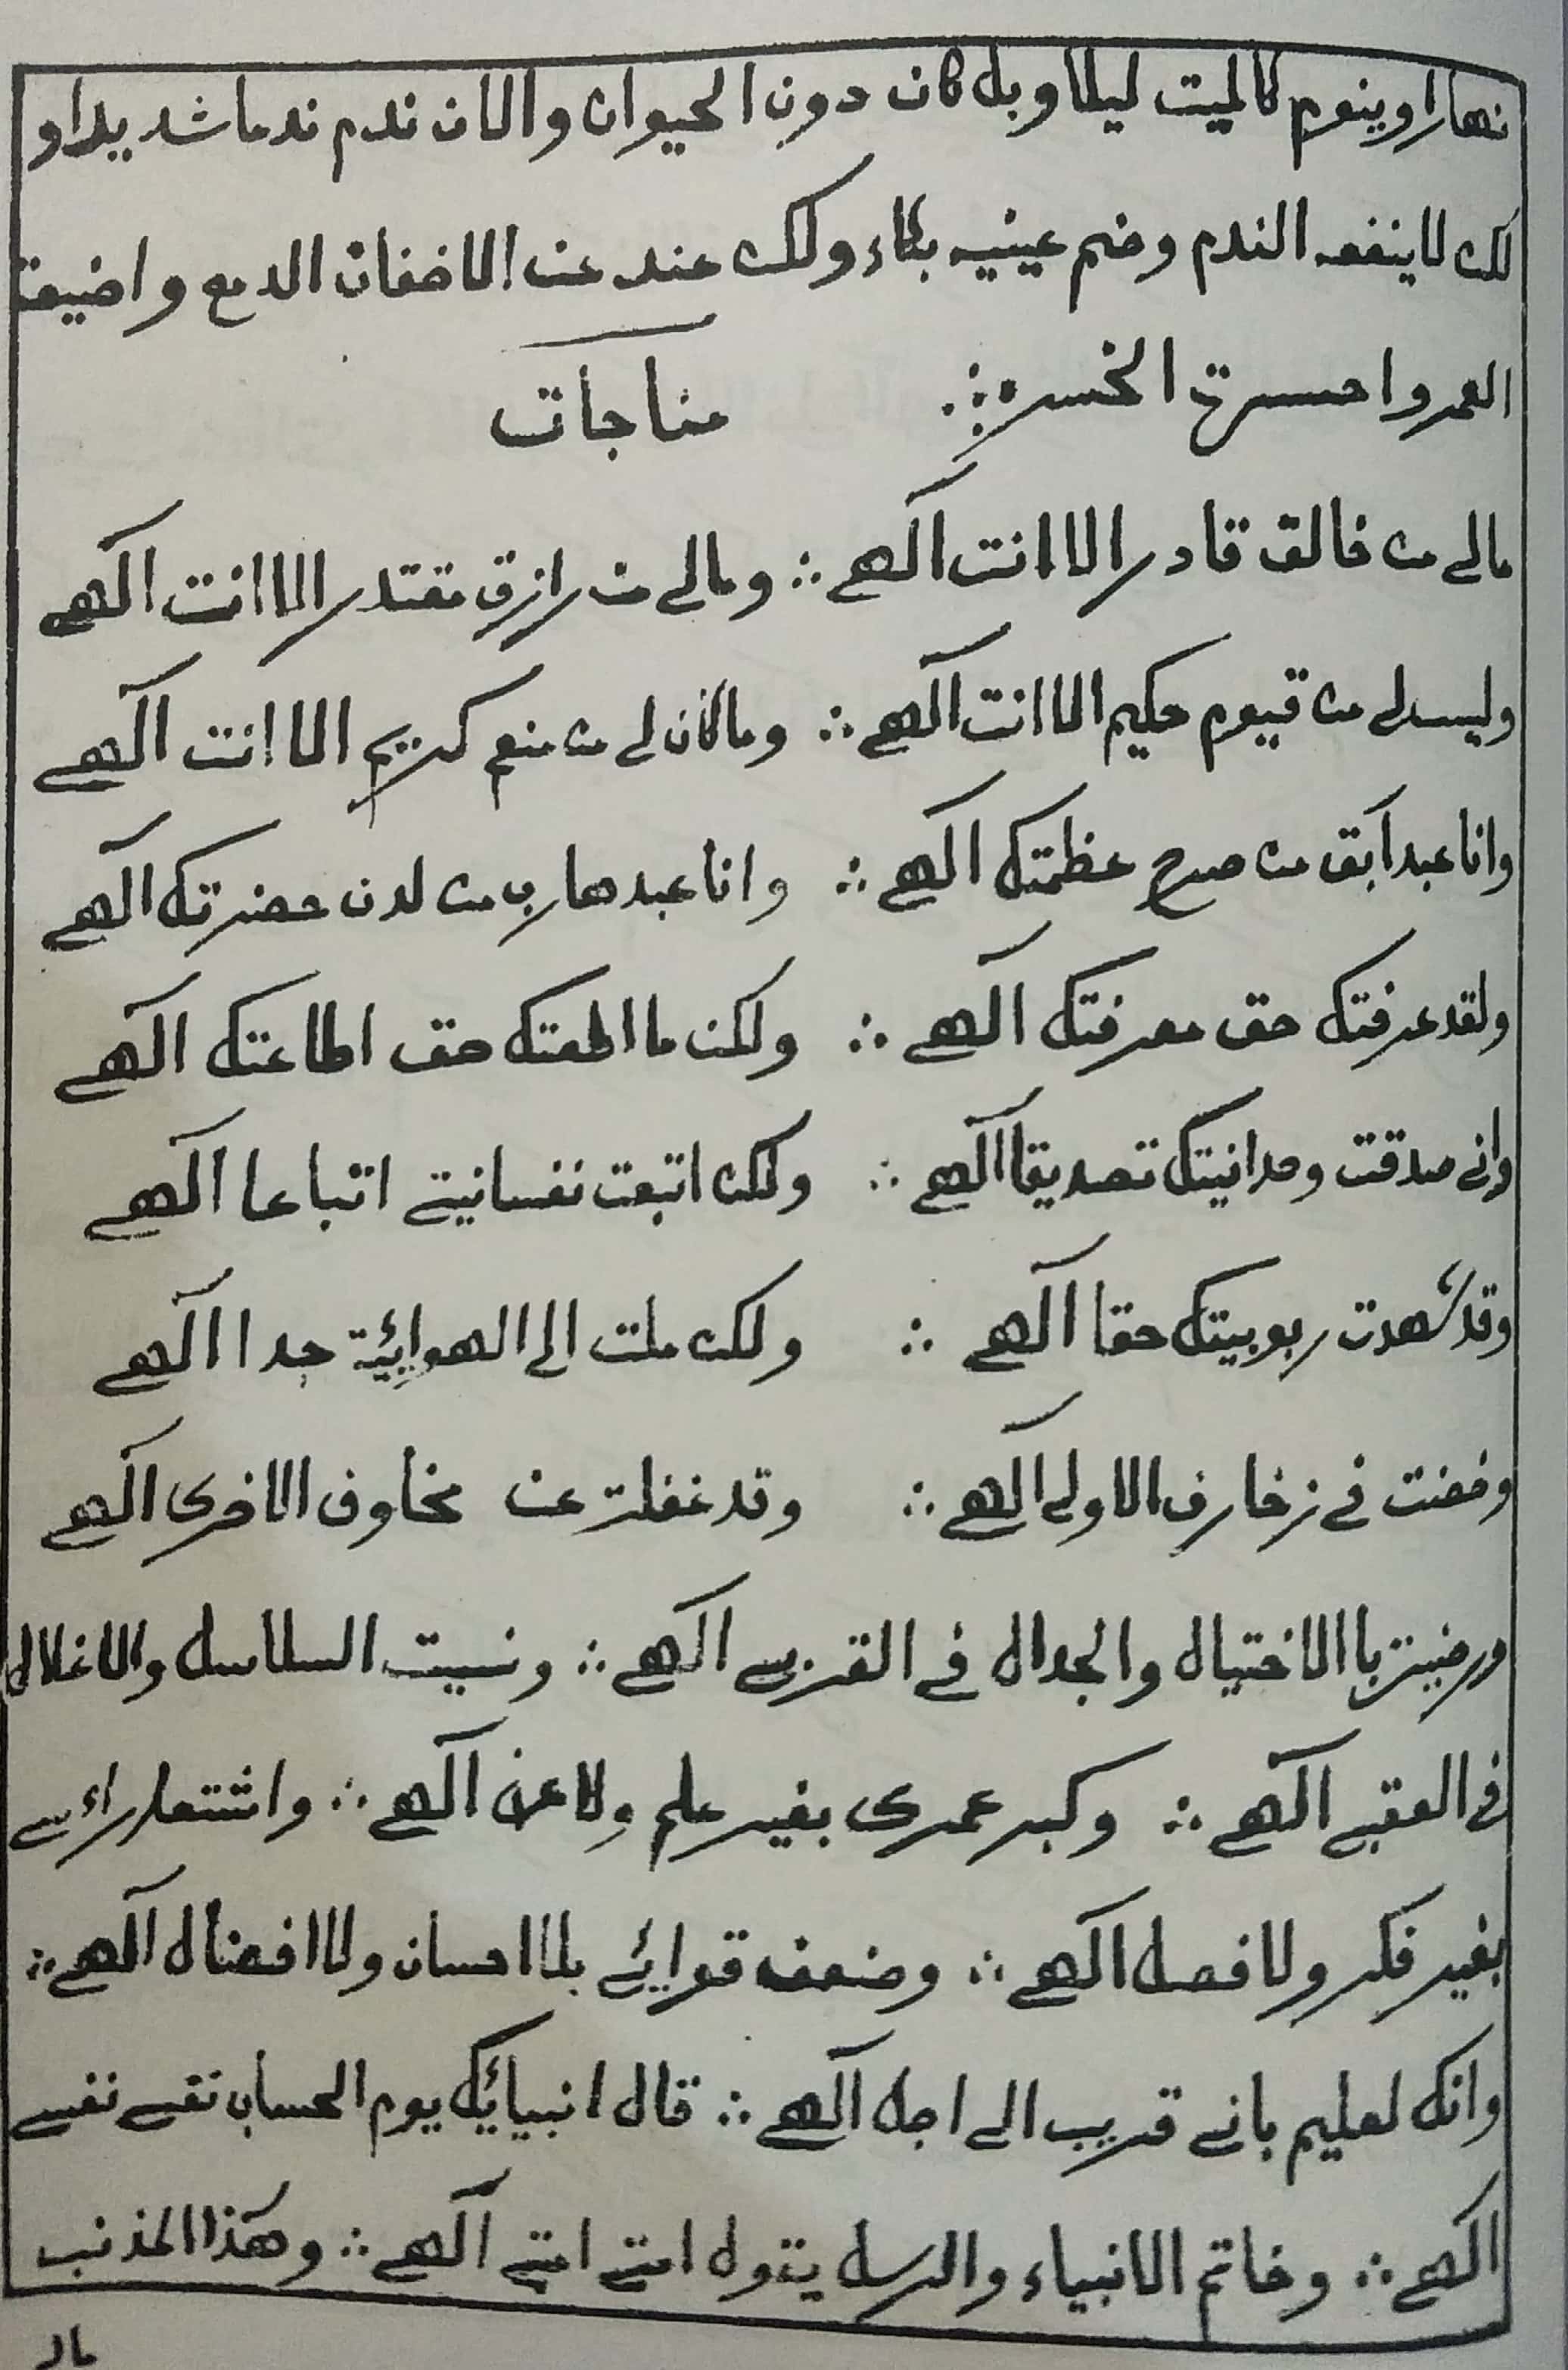 نهارا وينوم كالميت ليلا وبل كان دون الحيوان والان ندم ندما شديدا و
لكن لاينفعه الندم وضم عينيه بكاء ولكن عند عن الاضفان الدمع واضيعة
العمر واحسرة الخسر ∴
مناجات
مالے من خالق قادر الا انت الٓهے ∴ ومالے من رازق مقتدر الا انت الٓهے
وليس لے من قيوم حكيم الا انت الٓهے ∴ وما كان لے من منعم كريم الا انت الٓهے
وانا عبد آبق من صرح عظمتك الٓهے ∴ وانا عبد هارب من لدن حضرتك الٓهے
ولقد عرفتك حق معرفتك الٓهے ∴ ولكن ما اطعتك حق اطاعتك الٓهے
وانے صدقت وحدانيتك تصديقا الٓهے ∴ ولكن اتبعت نفسانيتے اتباعا الٓهے
وقد شهدت ربوبيتك حقا الٓهے ∴ ولكن ملت الى الهوائية جدا الٓهے
وخضت فے زخارف الاولى الٓهے ∴ وقد غفلت عن مخاوف الاخرى الٓهے
ورضيت باالاختيال والجدال فے الٓهے ∴ ونسيت السلاسل والاغلال
فى العقبے الٓهے ∴ وكبر عمرى بغير علم ولا عرف الٓهے ∴ واشتعل راءسے
بغير فكر ولا فصل الٓهے ∴ وضعف قوائے بلا احسان ولا افضال الٓهے ∴
وانك لعليم بانے قريب الے اجل الٓهے ∴ قال انبيائك يوم الحساب نفسے نفسے
الٓهے ∴ وخاتم الانبياء والرسل يقول امتے امتے الٓهے ∴ وهكذا المذنب
مالے